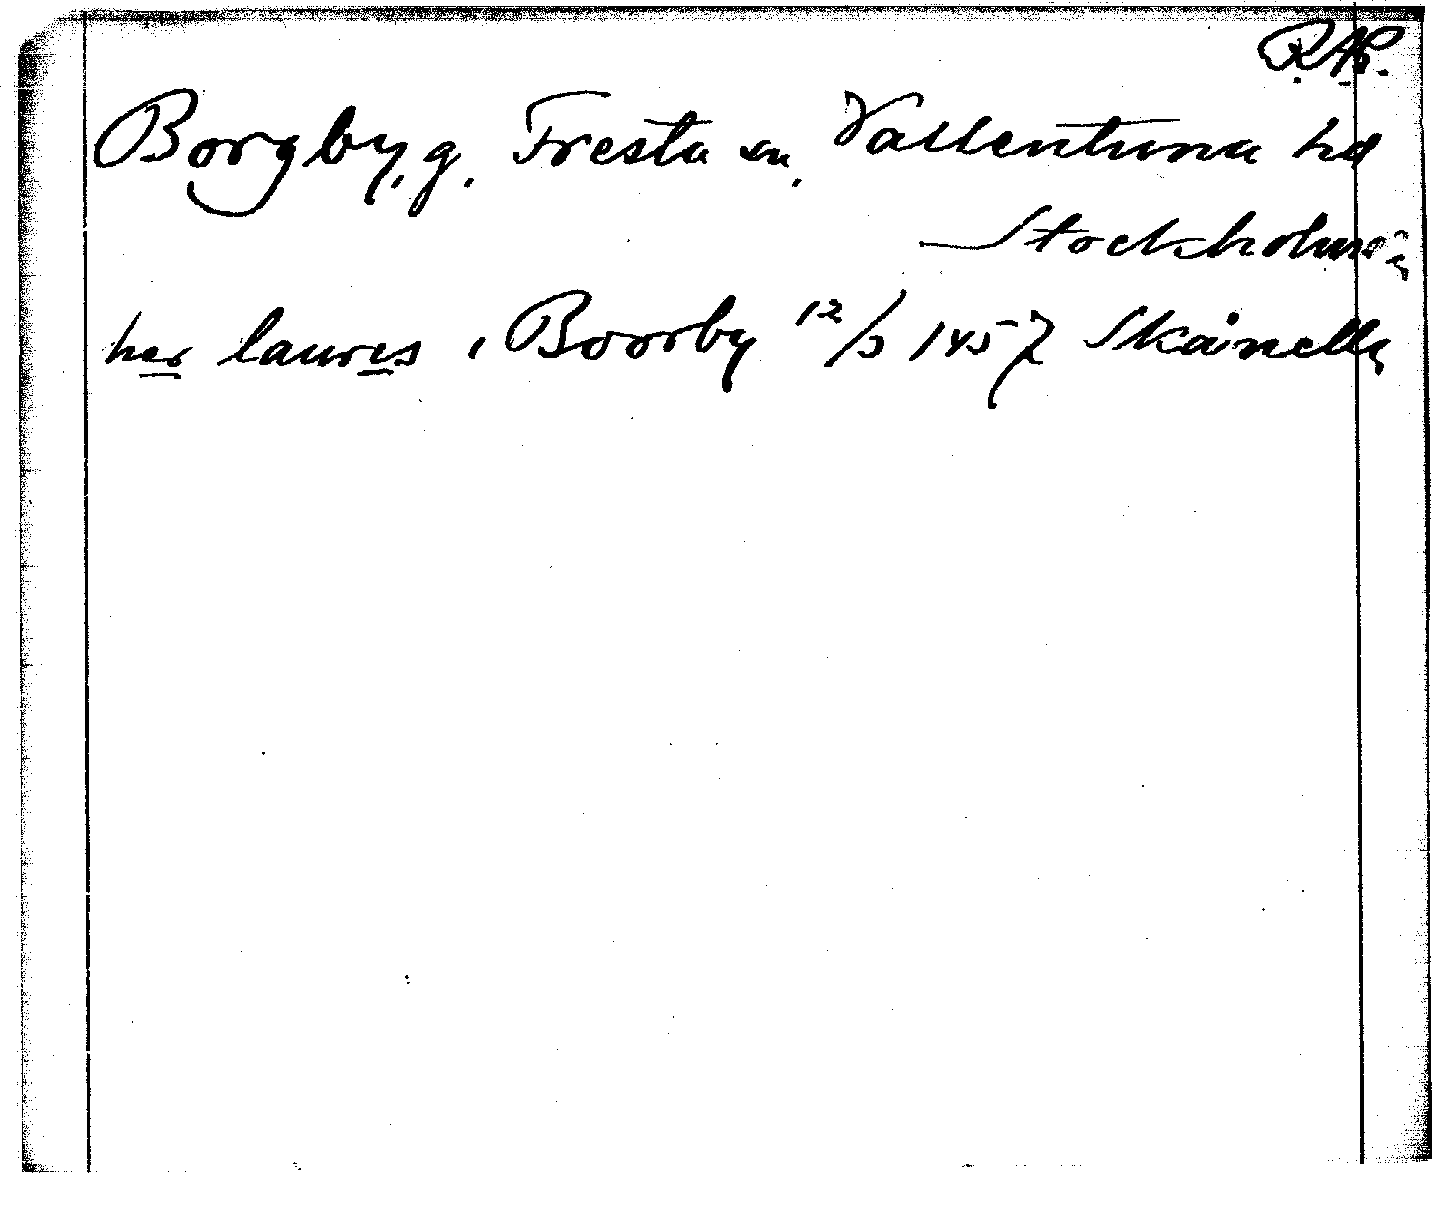 RAp.
Borgby, g. Fresta sn, Vallentuna hd
Stockholms
her laurıs i Boorby 12/3 1457 Skånella